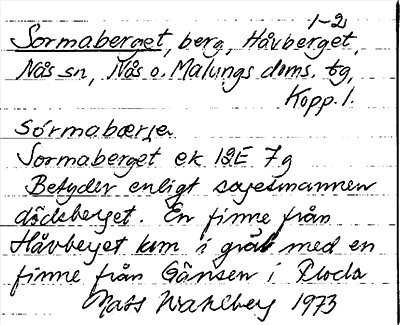 1-2
Sormaberget, berg, Håvberget,
Nås sn, Nås o. Malungs doms. tg,
Kopp. l.
sórmabærje
Sormaberget ek. 12E 7g
Betyder enligt sagesmannen
dödsberget. En finne från
Håvberget kom i gräl med en
finne från Gänsen i Floda
Mats Wahlberg 1973